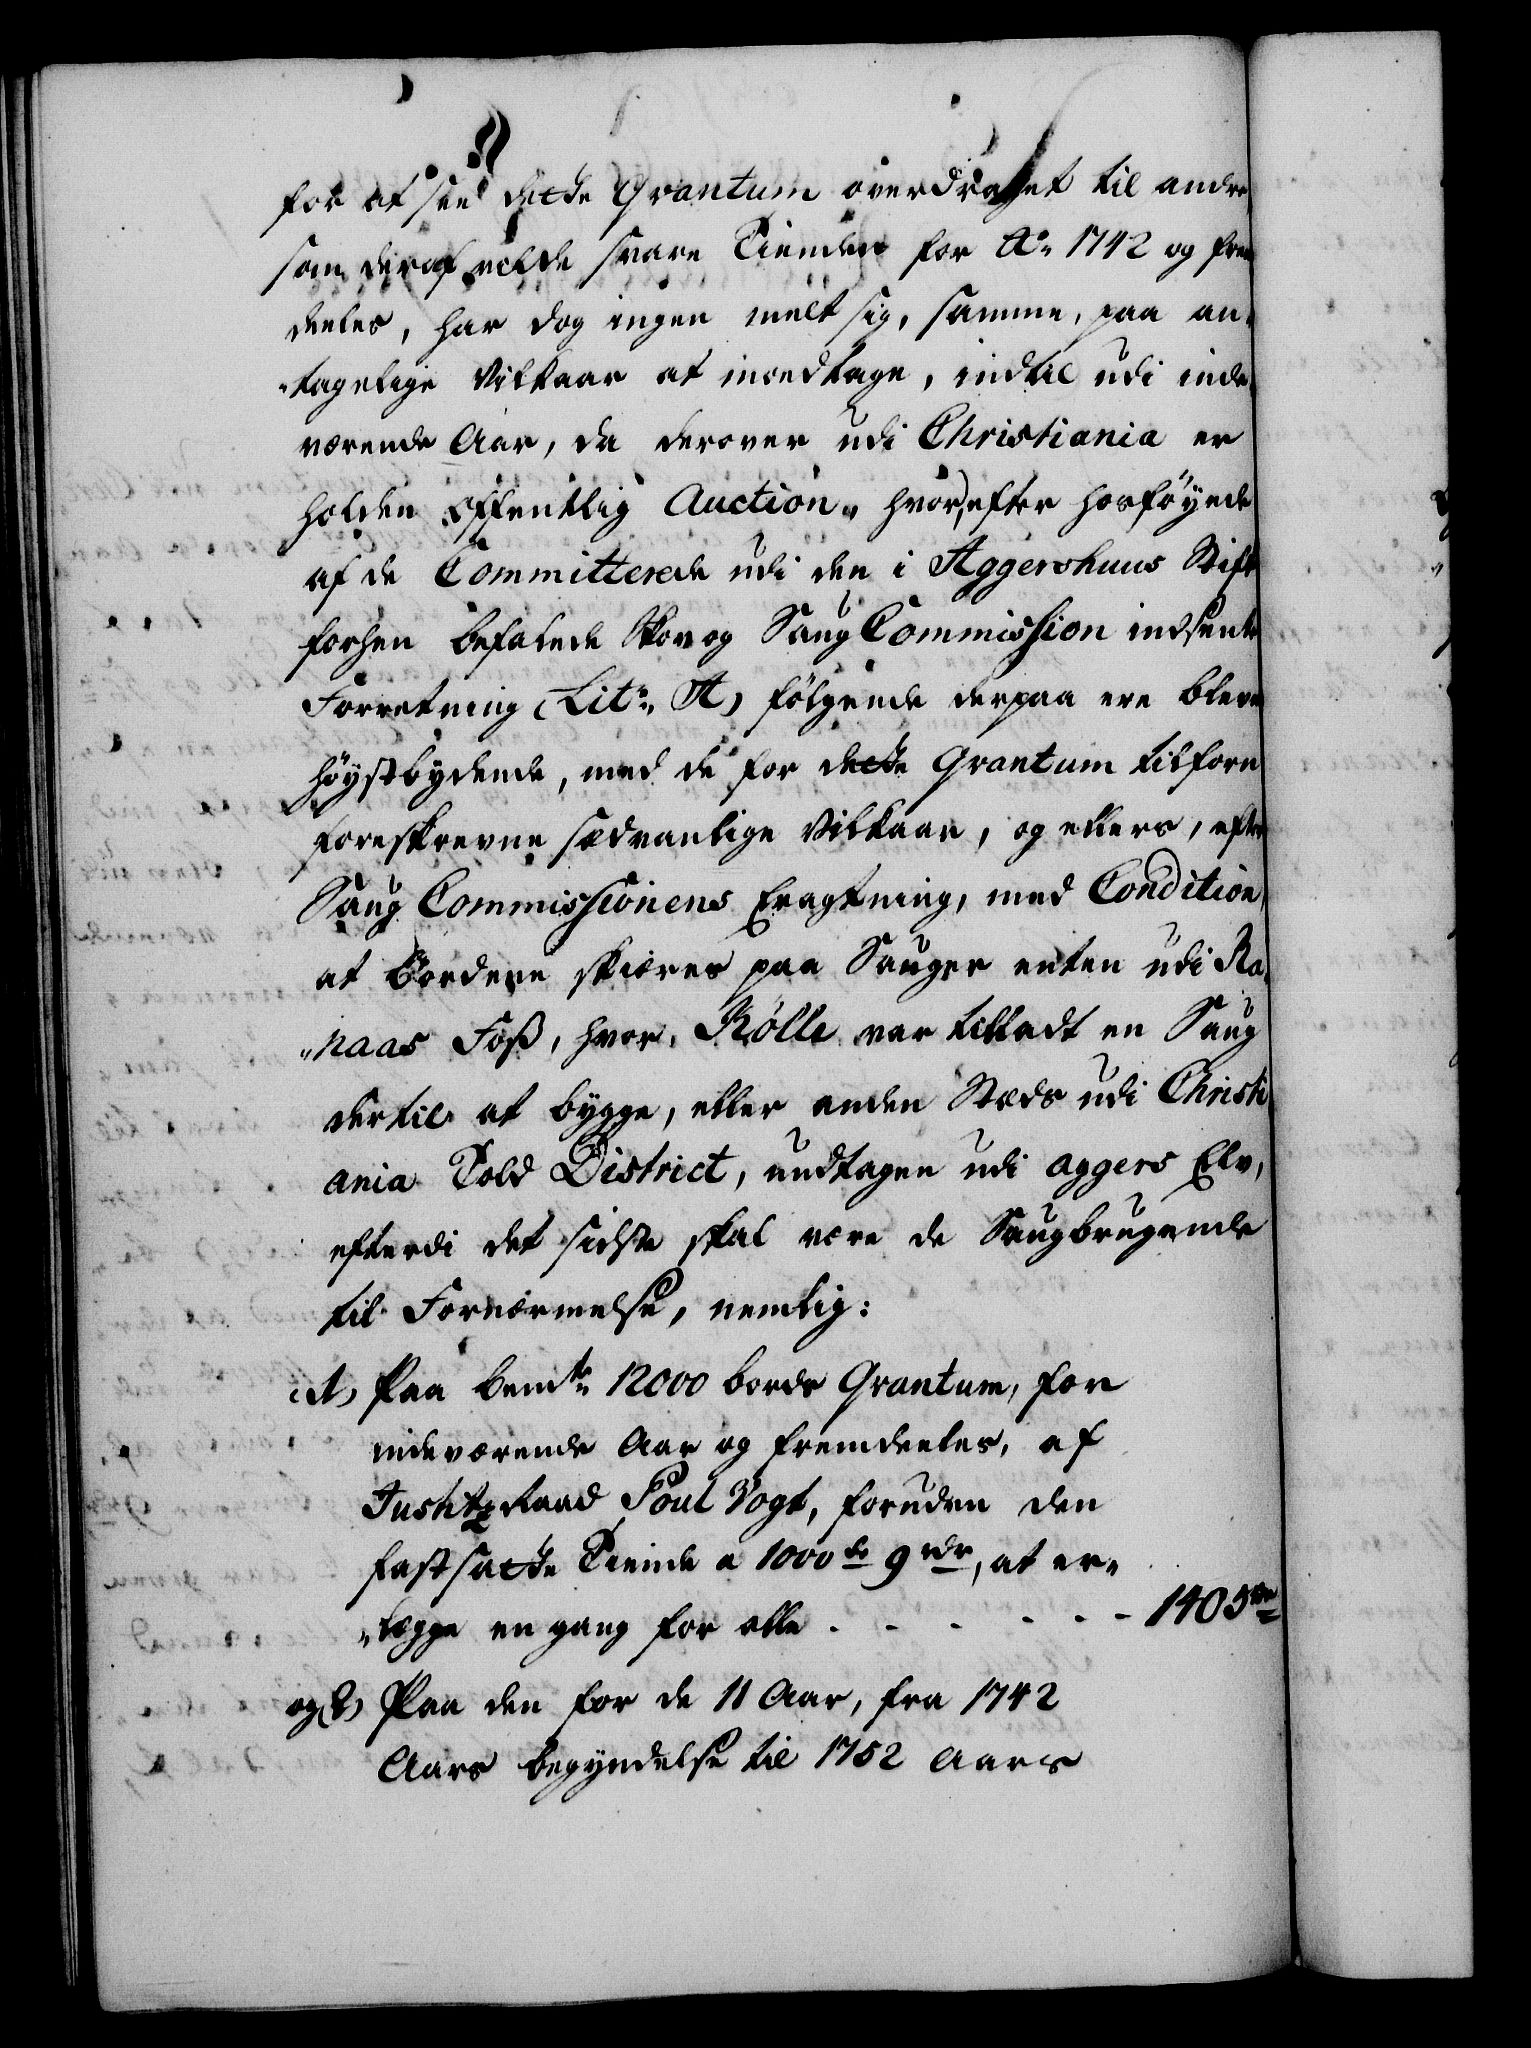 for at see dette Qvantum overdraget til andre,
som deraf vilde svare Tienden for Ao 1742 og frem
deeles, har dog ingen meelt sig, samme, paa an„
„tagelige Vilkaar at imodtage, indtil udi inde„
værende Aar, da derover udi Christiania er
holden offentlig Auction„ hvor, efter hosföyede
af de Committerede udi den i Aggershuus Stift
forhen befalede Skov og Saug Commission indsendte
Forretning (Litr. A) fölgende derpaa ere bleven
höystbydende, med de for dette Qvantum tilforn
foreskrevne sædvanlige Vilkaar, og ellers, efter
Saug Commissionens Eragtning, med Condition,
at Bordene skiæres paa Sauger enten udi Ra„
„naas Foss, hvor Kølle var tilladt en Saug
dertil at bygge, eller anden Stæds udi Christi
ania Told District, undtagen udi aggers Elv,
efterdi det sidste skal være de Saugbrugende
til Fornærmelse, nemlig:
1) Paa bemte 12000 bords Qvantum, for
indeværende Aar og fremdeeles, af
Justitz Raad Poul Vogt, foruden den
fastsatte Tiende a 1000de 9 rdr, at er„
„lægge en gang for alle . - - - - - 1405 rdr
og 2) Paa den for de 11 Aar, fra 1742
Aars begyndelse til 1752 Aars